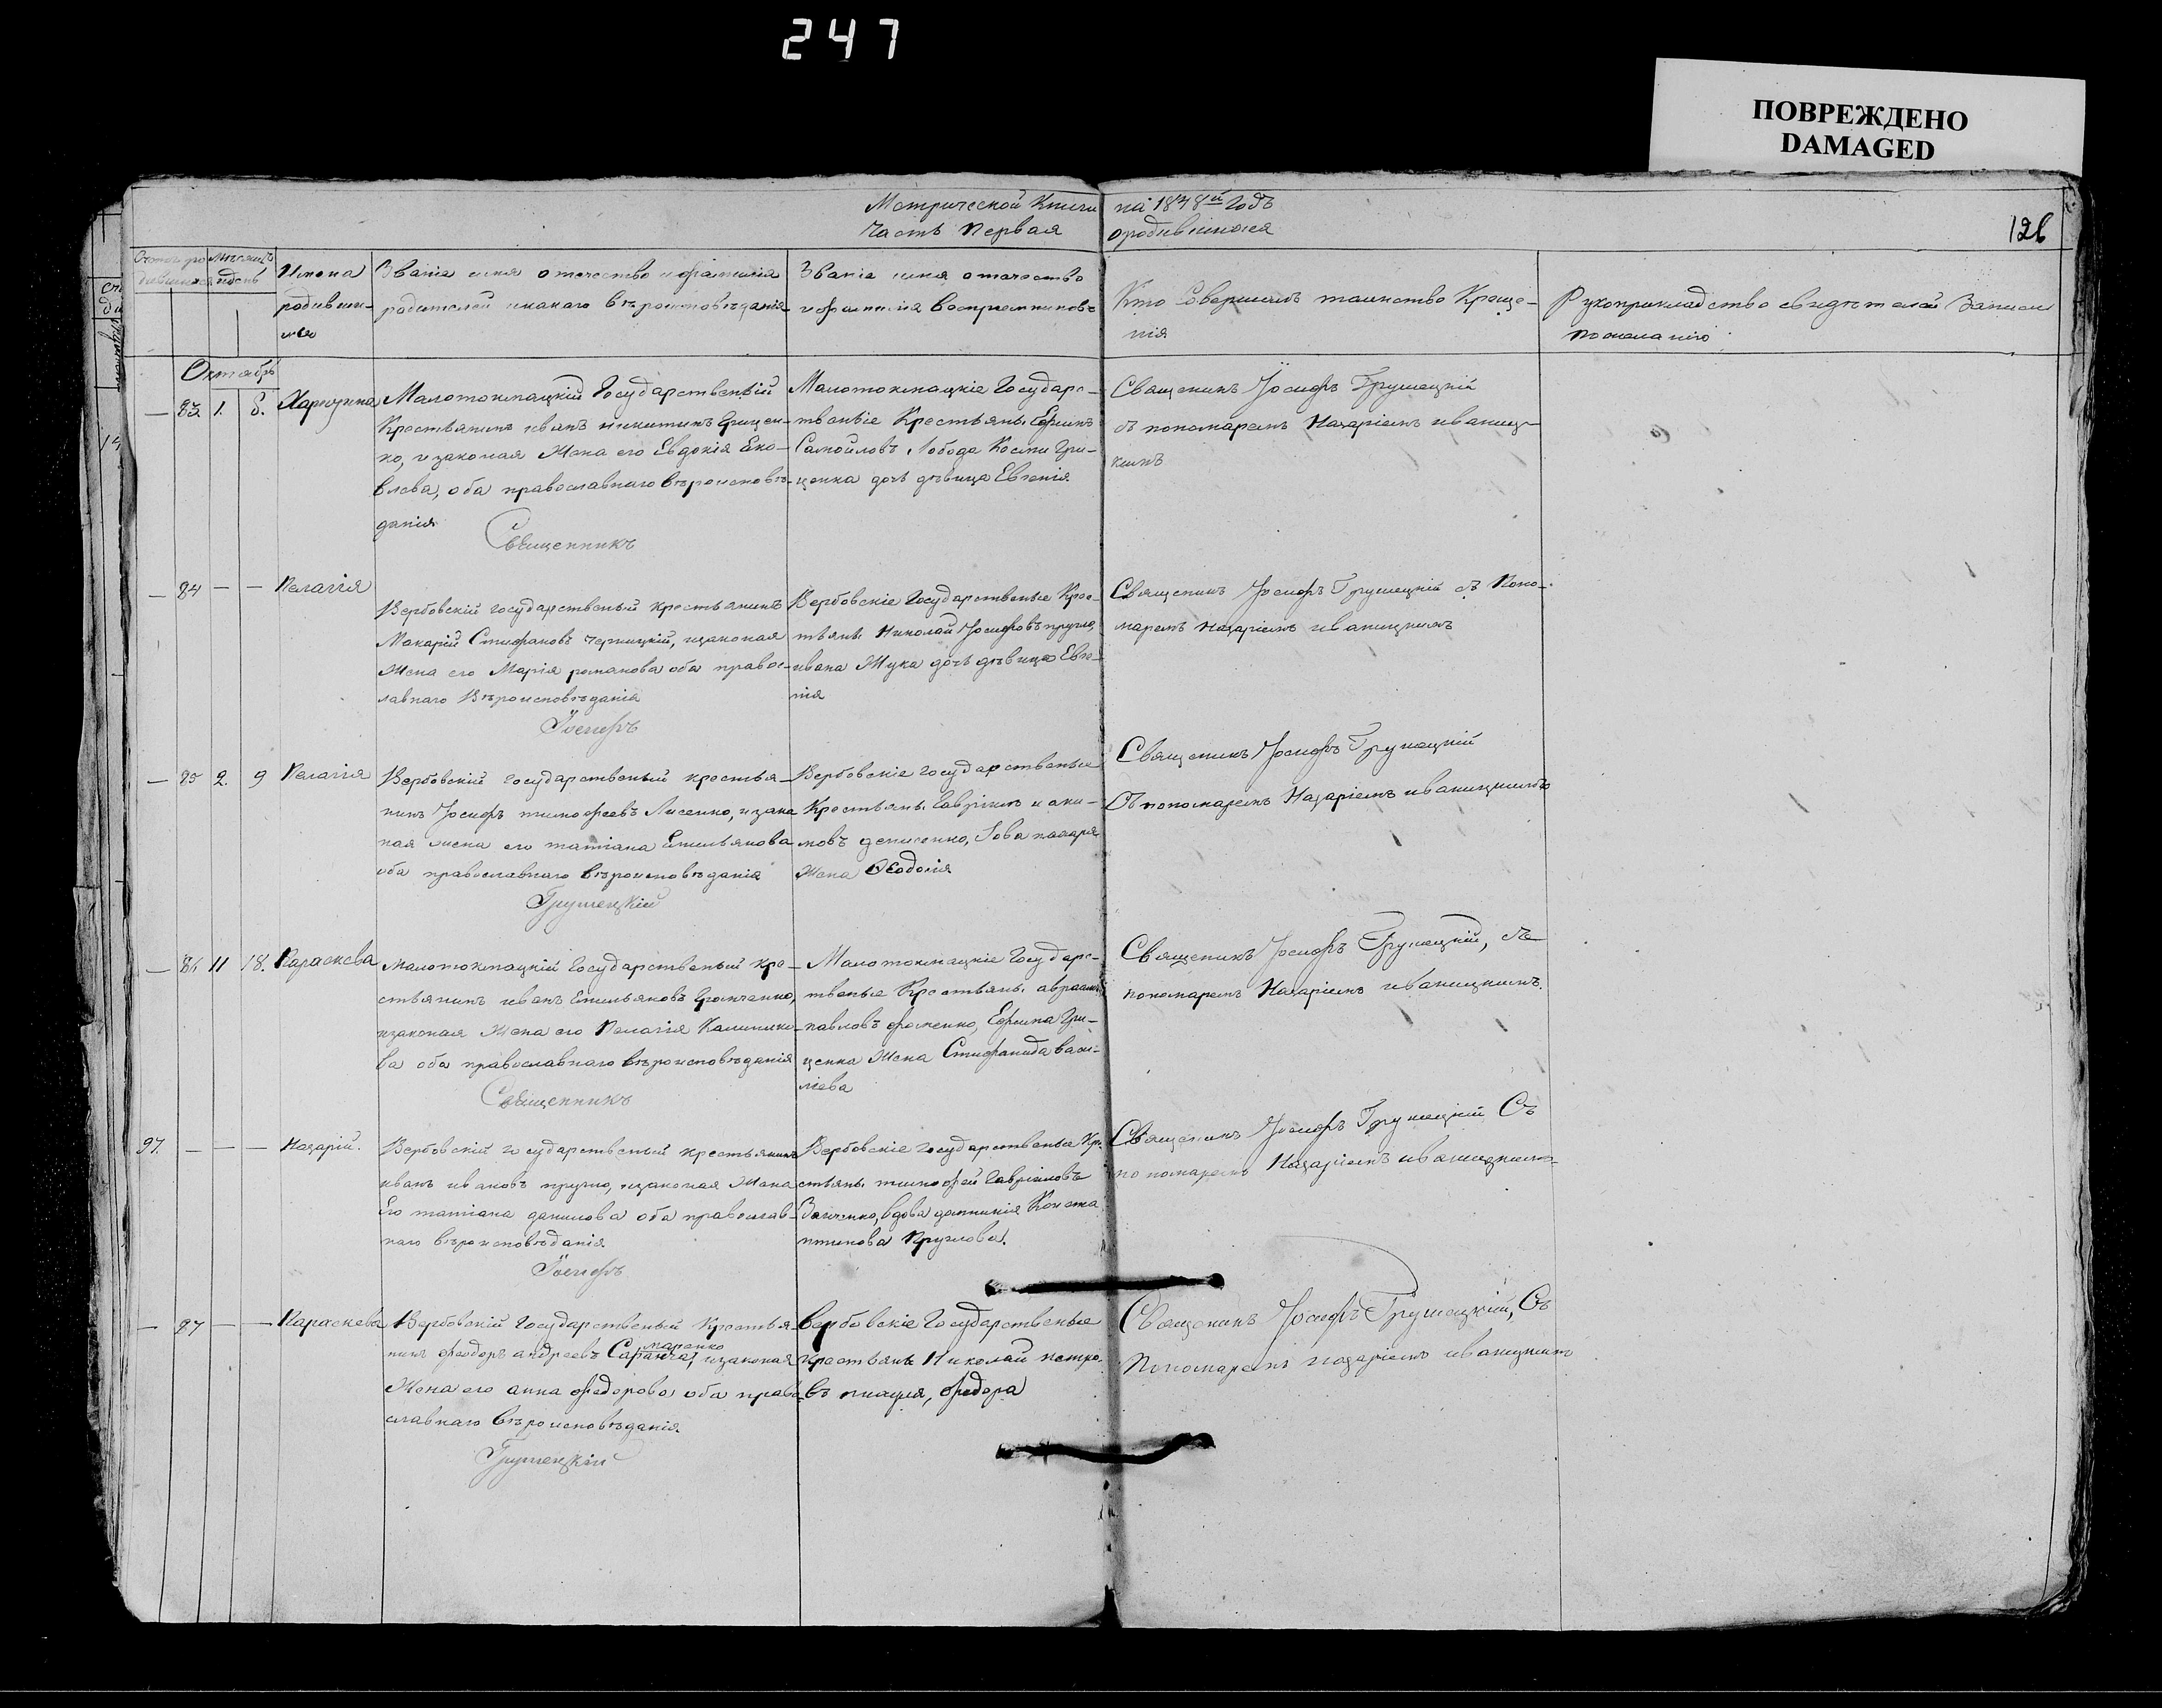 247
ПОВРЕЖДЕНО
DAMAGED
Метрической Книги на 1848й годъ
Часть Первая о родившихся
126
Счетъ ро Мѣсяцъ
дившихся и день
Имена
родивши-
хся
Званіе имя отечество и фамилія
родителей и какаго вѣроисповѣданія
Званіе имя отечество
и фамилія воспріемниковъ
Кто Совершалъ таинство Креще-
нія
Рукоприкладство свидѣтелей Записи
по желанію
Октябрь
— 83. 1. 8.
Малотокмацкій Государственій
Крестьянинъ иванъ никитинъ Грицен-
ко, и законая Жена его Евдокія Яко-
влева, оба православнаго вѣроисповѣ-
данія
Священникъ
Малотокмацкіе Государс-
твеніе Крестьяне, Ефимъ
Самойловъ Лобода Косми Гри-
ценка дочь дѣвица Евгенія
Священикъ Іосифъ Грушецкій
съ пономаремъ Назаріемъ иваниц-
кимъ
— 84 — — Пелагія
Вербовскій государственый крестьянинъ
Макарій Стефановъ Черницкій, и законая
Жена его Марія романова оба правос-
лавнаго Вѣроисповѣданія
Іосифъ
Вербовскіе Государственые Крес-
тьяне Николай Іосифовъ пругло,
ивана Жука дочь дѣвица Евге-
нія
Священикъ Іосифъ Грушецкій съ Поно-
маремъ Назаріемъ иваницкимъ
— 85 2. 9 Пелагія
Вербовскій государственый крестья-
нинъ Іосифъ тимофеевъ Лисенко, и зако
ная жена его татіана Емельянова
оба православнаго вѣроисповѣданія
Грушецкій
Вербовскіе государственые
Крестьяне Гавріилъ иаки-
мовъ денисенко,
Жена Феодосія
Священикъ Іосифъ Грушецкій
Съ пономаремъ Назаріемъ иваницкимъ
— 86 11 18. Параскева
Малотокмацкій Государственый кре-
стьянинъ иванъ Емельяновъ
и законая Жена его Пелагія Калинико-
ва оба православнаго вѣроисповѣданія
Священникъ
Малотокмацкіе Государс-
твеные Крестьяне авраамъ
павловъ фоменко, Ефима Гри-
ценка Жена Стефанида васи-
лієва
Священикъ Іосифъ Грушецкій, съ
пономаремъ Назаріемъ иваницкимъ.
97. — — — Назарій.
Вербовскій государственый крестьянинъ
иванъ ивановъ пругло, и законая Жена
Его татіана данилова оба православ-
наго вѣроисповѣданія.
Іосифъ
Вербовскіе государственые Кре
стьяне тимофей Гавріиловъ
вдова домникія Конста
нтинова Круглова.
Священикъ Іосифъ Грушецкій Съ
пономаремъ Назаріемъ иваницкимъ
— 87 — — Параскева
Вербовскій Государственый Крестья-
маренко
нинъ феодоръ андреевъ и законая
Жена его анна федорова оба право
славнаго Вѣроисповѣданія.
Грушецкій
Вербовскіе Государственые
крестьяне Николай петро-
въ федора
Священикъ Іосифъ Грушецкій, Съ
Пономаремъ назаріемъ иваницкимъ